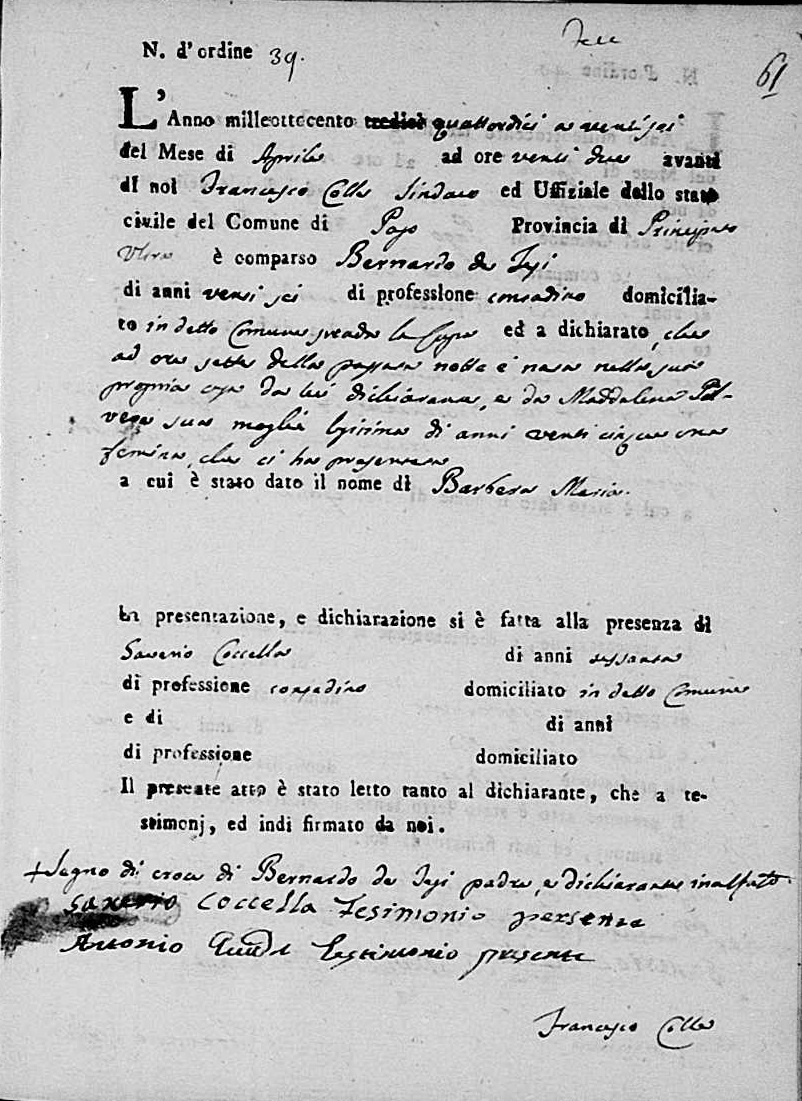 N. d'ordine 39.
61
L'Anno milleottocento tredici quattordici a ventisei
del Mese di Aprile ad ore venti due avanti
di noi Francesco Colle Sindaco ed Uffiziale dello stato
civile del Comune di Pago Provincia di Principato
Ultra è comparso Bernardo de
di anni venti sei di professione contadino domicilia-
to in detto Comune strada ed a dichiarato, che
ad ore sette della passata notte è nata nella sua
propria casa da lui dichiarante, e da Maddalena Pol-
vere sua moglie legitima di anni venti cinque una
femina, che ci ha presentata
a cui è stato dato il nome di Barbera Maria.
La presentazione, e dichiarazione si è fatta alla presenza di
Saverio Coccella di anni sessanta
di professione contadino domiciliato in detto Comune
e di di anni
di professione domiciliato
Il presente atto è stato letto tanto al dichiarante, che a te-
stimonj, ed indi firmato da noi.
+ Segno di croce di Bernardo de padre, e dichiarante inalfabeto
Saverio Coccella Tesimonio persente
Antonio testimonio presente
Francesco Colle